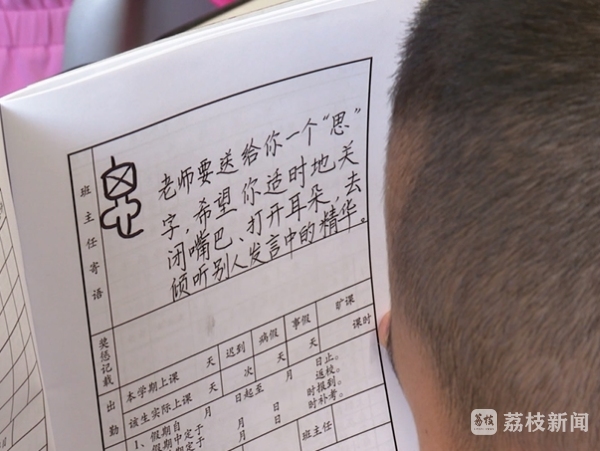 班主任寄语
老师要送给你一个“思”
字，希望你适时地关
闭嘴巴、打开耳朵，去
倾听别人发言中的精华。
奖惩记载
出勤
本学期上课 天 迟到 病假 事假 旷课
该生实际上课 天 次 天 天 课时
1、假期自 月 日起至 月 日止。
假期中定于 月 日 返校。
定于 月 日 时报到
时补考。
班主任
荔枝 荔枝新闻